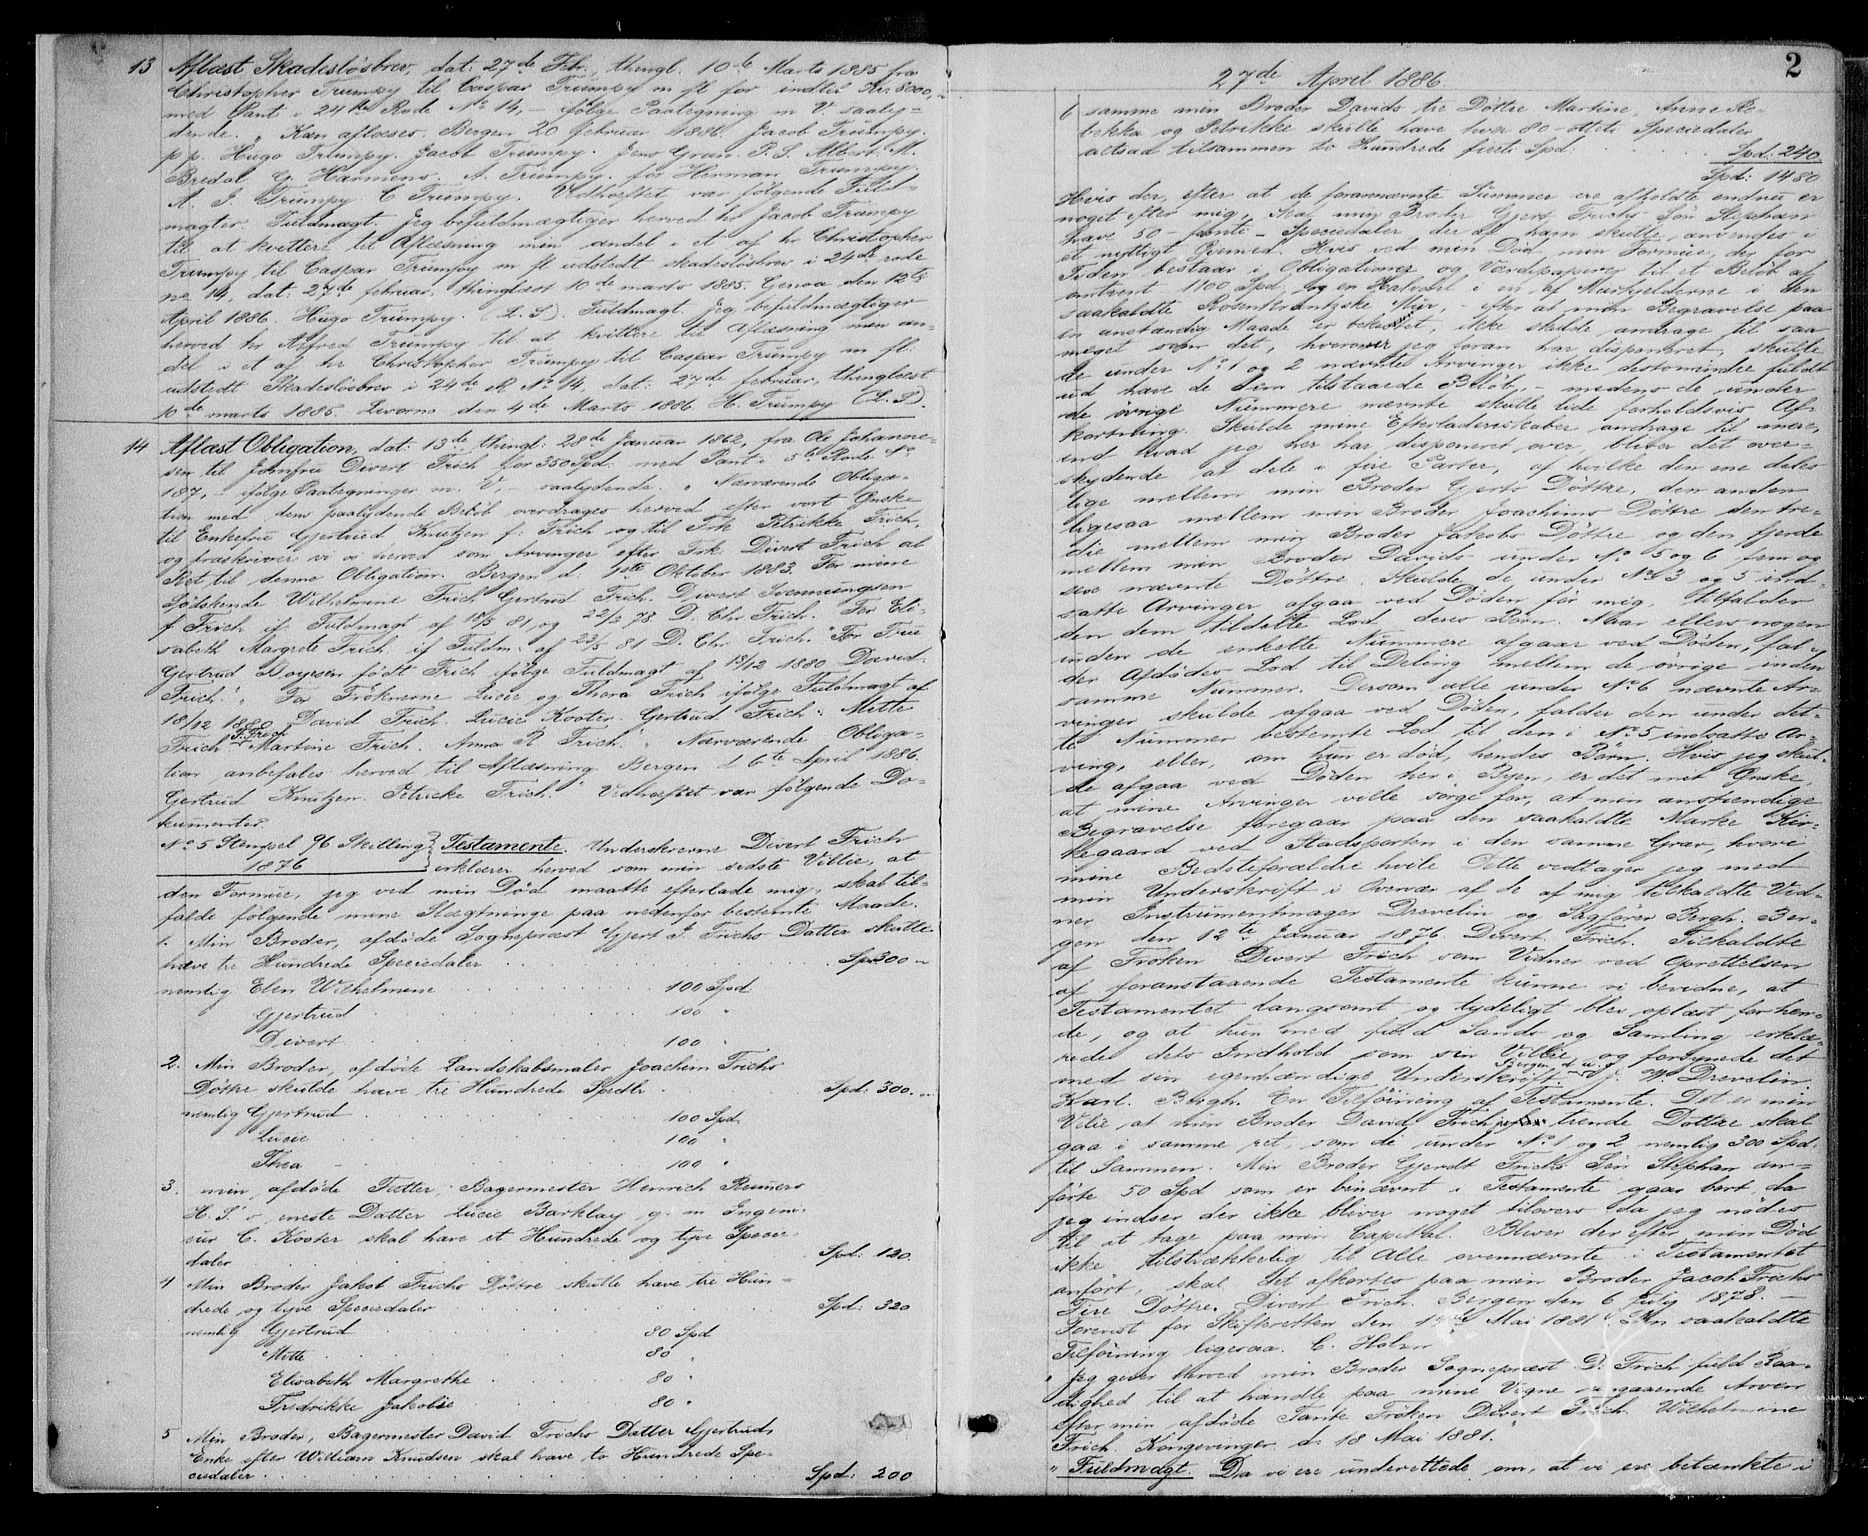 13 Aflæst Skadesløsbrev, dat: 27de Febr., thingl. 10de Marts 1885 fra
Christopher Trumpy til Caspar Trumpy m fl for indtil Kr. 8000,-
med Pant i 24de Rode No 14, - ifølge Paategning m V. saaly-
dende. " Kan aflæses. Bergen 20 februar 1886. Jacob Trumpy.
p p. Hugo Trumpy. Jacob Trumpy. Jens Gran. P. S. Albert. M.
Bredal G. Harmens. A. Trumpy. for Herman Trumpy.
A. J. Trumpy. C Trumpy. " Vedhæftet var følgende Fuld-
magter. Fuldmagt. Jeg befuldmægtiger herved hr Jacob Trumpy
til at kvittere til Aflæsning min andel i et af hr Christopher
Trumpy til Caspar Trumpy m fl udstedt skadesløsbrev i 24de rode
no 14, dat: 27de februar, thinglæst 10de marts 1885. Genoa den 12te
April 1886 Hugo Trumpy. (L. S). Fuldmagt. Jeg befuldmægtiger
herved hr Alfred Trumpy til at kvittere til Aflæsning min an-
del i et af hr Christopher Trumpy til Caspar Trumpy m fl.
udstedt Skadesløsbrev i 24de R No 14, dat: 27de februar, thinglæst
10de marts 1885. Livorno den 4de Marts 1886 H. Trumpy (L. S).
14 Aflæst Obligation, dat: 13de, thingl: 28de Januar 1862, fra Ole Johanne-
sen til Jomfru Divert Frich for 350 Spd: med Pant i 5te Rode No
187, - ifølge Paategninger m. V, - saalydende. " Nærværende Obliga-
tion med dens paalydende Beløb overdrages herved efter vort Ønske
til Enkefru Gjertrud Knutzen f: Frich og til Frk Petrikke Frich,
og fraskriver vi os herved som Arvinger efter Frk. Divert Frich al
Ret til denne Obligation. Bergen d. 1ste Oktober 1883. For mine
Sødskende Wilhelmine Frich Gertrud Frich. Divert Svenningsen
f Frich if Fuldmagt af 18/5 81, og 22/3 78 D. Chr. Frich. " For Eli-
sabeth Margrete Frich. if Fuldm: af 23/5 81 D. Chr Frich. " For Frue
Gertrud Boyesen født Frich ifølge Fuldmagt af 18/12 1880 David
Frich. " For Frøknerne Lucie og Thora Frich ifølge Fuldmagt af
18/12 1880 David Frich. Lucie Koster. Gertrud Frich. Mitte
F. Frich
Frich Martine Frich. Anna R Frich. " " Nærværende Obliga-
tion anbefales herved til Aflæsning. Bergen d 6te April 1886.
Gertrud Knutzen. Petricke Frich. " Vedhæftet var følgende Do-
kumenter.
No 5 Stempel 96 Skilling Testamente. Underskrevne Divert Frich
1876 erklærer herved som min sidste Villie, at
den Formue, jeg ved min Død maatte efterlade mig, skal til-
falde følgende mine Slægtninge paa nedenfor bestemte Maade.
1. Min Broder, afdøde Sognepræst Gjert J. Frichs Datter skulle
have tre Hundrede Speciedaler Spd 300 "
nemlig Elen Wilhelmine 100 Spd.
Gjertrud 100 "
Divert 100 "
2. Min Broder, afdøde Landskabsmaler Joachim Frichs
Døttre skulde have tre Hundrede Specdlr. Spd: 300. "
nemlig Gjertrud 100 Spd.
Lucie 100 "
Thea 100 "
3. min, afdøde Fætter, Bagermester Henrich Reimers
H. S. s eneste Datter Lucie Barklay g. m Ingeni-
eur C. Koster skal have et Hundrede og tyve Specie-
daler Spd: 120
4 Min Broder Jakob Frichs Døttre skulle have tre Hun-
drede og tyve Speciedaler Spd: 320
nemlig Gjertrud 80 Spd
Mitte 80 "
Elisabeth Margrethe 80 "
Fredrikke Jakobie 80 "
5 Min Broder, Bagermester David Frichs Datter Gjertrud,
Enke efter William Knudsen skal have to Hundrede Spe-
ciedaler Spd: 200
2
27de April 1886.
6 samme min Broder Davids tre Døttre Martine, Anne Re-
bekka og Petrikke skulle have hver 80 - otteti Speciedaler
altsaa tilsammen to Hundrede firti Spd. Spd: 240
Spd: 1480
Hvis der, efter at de forannævnte Summer ere afholdte endnu er
noget efter mig, skal min Broder Gjert Frichs Søn Stephan
have 50 - femti - Speciedaler der af ham skulle anvendes i
et nyttigt Øiemed. Hvis ved min Død min Formue, der for
Tiden bestaar i Obligationer og Værdipapirer til et Beløb af
omtrent 1100 Spd. og en Halvdel i en af Murkjelderne i den
saakaldte Rosenkrantzske Muur, - efter at min Begravelse paa
en anstændig Maade er bekostet, ikke skulde andrage til saa
meget som det, hvorover jeg foran har disponeret, skulle
de under No 1 og 2 nævnte Arvinger ikke destomindre fuldt
ud have de dem tilstaaede Beløb, - medens de under
de øvrige Nummere nævnte skulle lide forholdsvis Af-
kortning. Skulde mine Efterladenskaber andrage til mere,
end hvad jeg her har disponeret over, bliver det over-
skydende at dele i fire Parter, af hvilke den ene deles
lige mellem min Broder Gjerts Døttre, den anden
ligesaa mellem min Broder Joachims Døttre den tre-
die mellem min Broder Jakobs Døttre og den fjerde
mellem min Broder Davids under No 5 og 6 fem og
sex nævnte Døttre. Skulde de under No 3 og 5 ind-
satte Arvinger afgaa ved Døden før mig, tilfalder
den dem tildelte Lod deres Børn. Naar ellers nogen
inden de enkelte Nummere afgaar ved Døden, fal-
der Afdødes Lod til Deling mellem de øvrige inden
samme Nummer. Dersom alle under No 6 nævnte Ar-
vinger skulde afgaa ved Døden, falder den under det-
te Nummer bestemte Lod til den i No 5 indsatte Ar-
ving, eller, om hun er død, hendes Børn. Hvis jeg skul-
de afgaa ved Døden her i Byen, er det mit Ønske,
at mine Arvinger ville sørge for, at min anstændige
Begravelse foregaar paa den saakaldte Marke Kir-
kegaard ved Stadsporten i den samme Grav, hvori
mine Bedsteforældre hvile Dette vedtager jeg med
min Underskrift i Overvær af de af mig tilkaldte Vid-
ner Instrumentmager Drevelin og Sagfører Bergh. Ber-
gen den 12te Januar 1876. Divert Frich. Tilkaldte
af Frøken Divert Frich som Vidner ved Oprettelsen
af foranstaaende Testamente kunne vi bevidne, at
Testamentet langsomt og tydeligt blev oplæst for hen-
de, og at hun med fuld Sands og Samling erklæ-
rede dets Indhold som sin Villie og forsynede det
Bergen d. u. s.
med sin egenhændige Underskrift. J. W. Drevelin.
Karl. Bergh. En Tilføining af Testamente. Det er min
Vilie, at min Broder David Frich trende Døttre skal
gaa i samme ret, som di under No 1 og 2 nemlig 300 Spd.
til Sammen. Min Broder Gjerdt Frichs Søn Stephan an-
førte 50 Spd som er benævnt i Testamente gaar bort, da
jeg indser der ikke bliver noget tilovers da jeg nødes
til at tage paa min Capettal. Bliver der efter min Død
ikke tilstrækkelig til Alle ovennævnte i Testamentet
anført, skal det afkortes paa min Broder Jacob Frichs
Fire Døttre. Divert Frich. Bergen den 6 July 1878. -
Forevist for Skifteretten den Mai 1881. Den saakaldte
Tilføining ligesaa. C. Holm
" Jeg giver herved min Broder Sognepræst D. Frich fuld Raa-
dighed til at handle paa mine Vegne angaaende Arven
efter min afdøde Tante Frøken Divert Frich. Wilhelmine
Frich. Kongsvinger d: 18 Mai 1881.
" Fuldmagt. Da vi ere underrettede om, at vi ere betænkte i